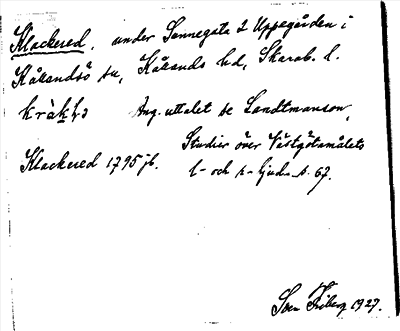 Klackered, under Sannegata 2 Uppegården i
Kållandsö sn, Kållands hd, Skarab. l.
Ang. uttalet se Landtmanson,
Studier över Västgötamålets
Klackered 1795 jb.
l- och r-ljud s. 67.
Sven Friberg 1927.